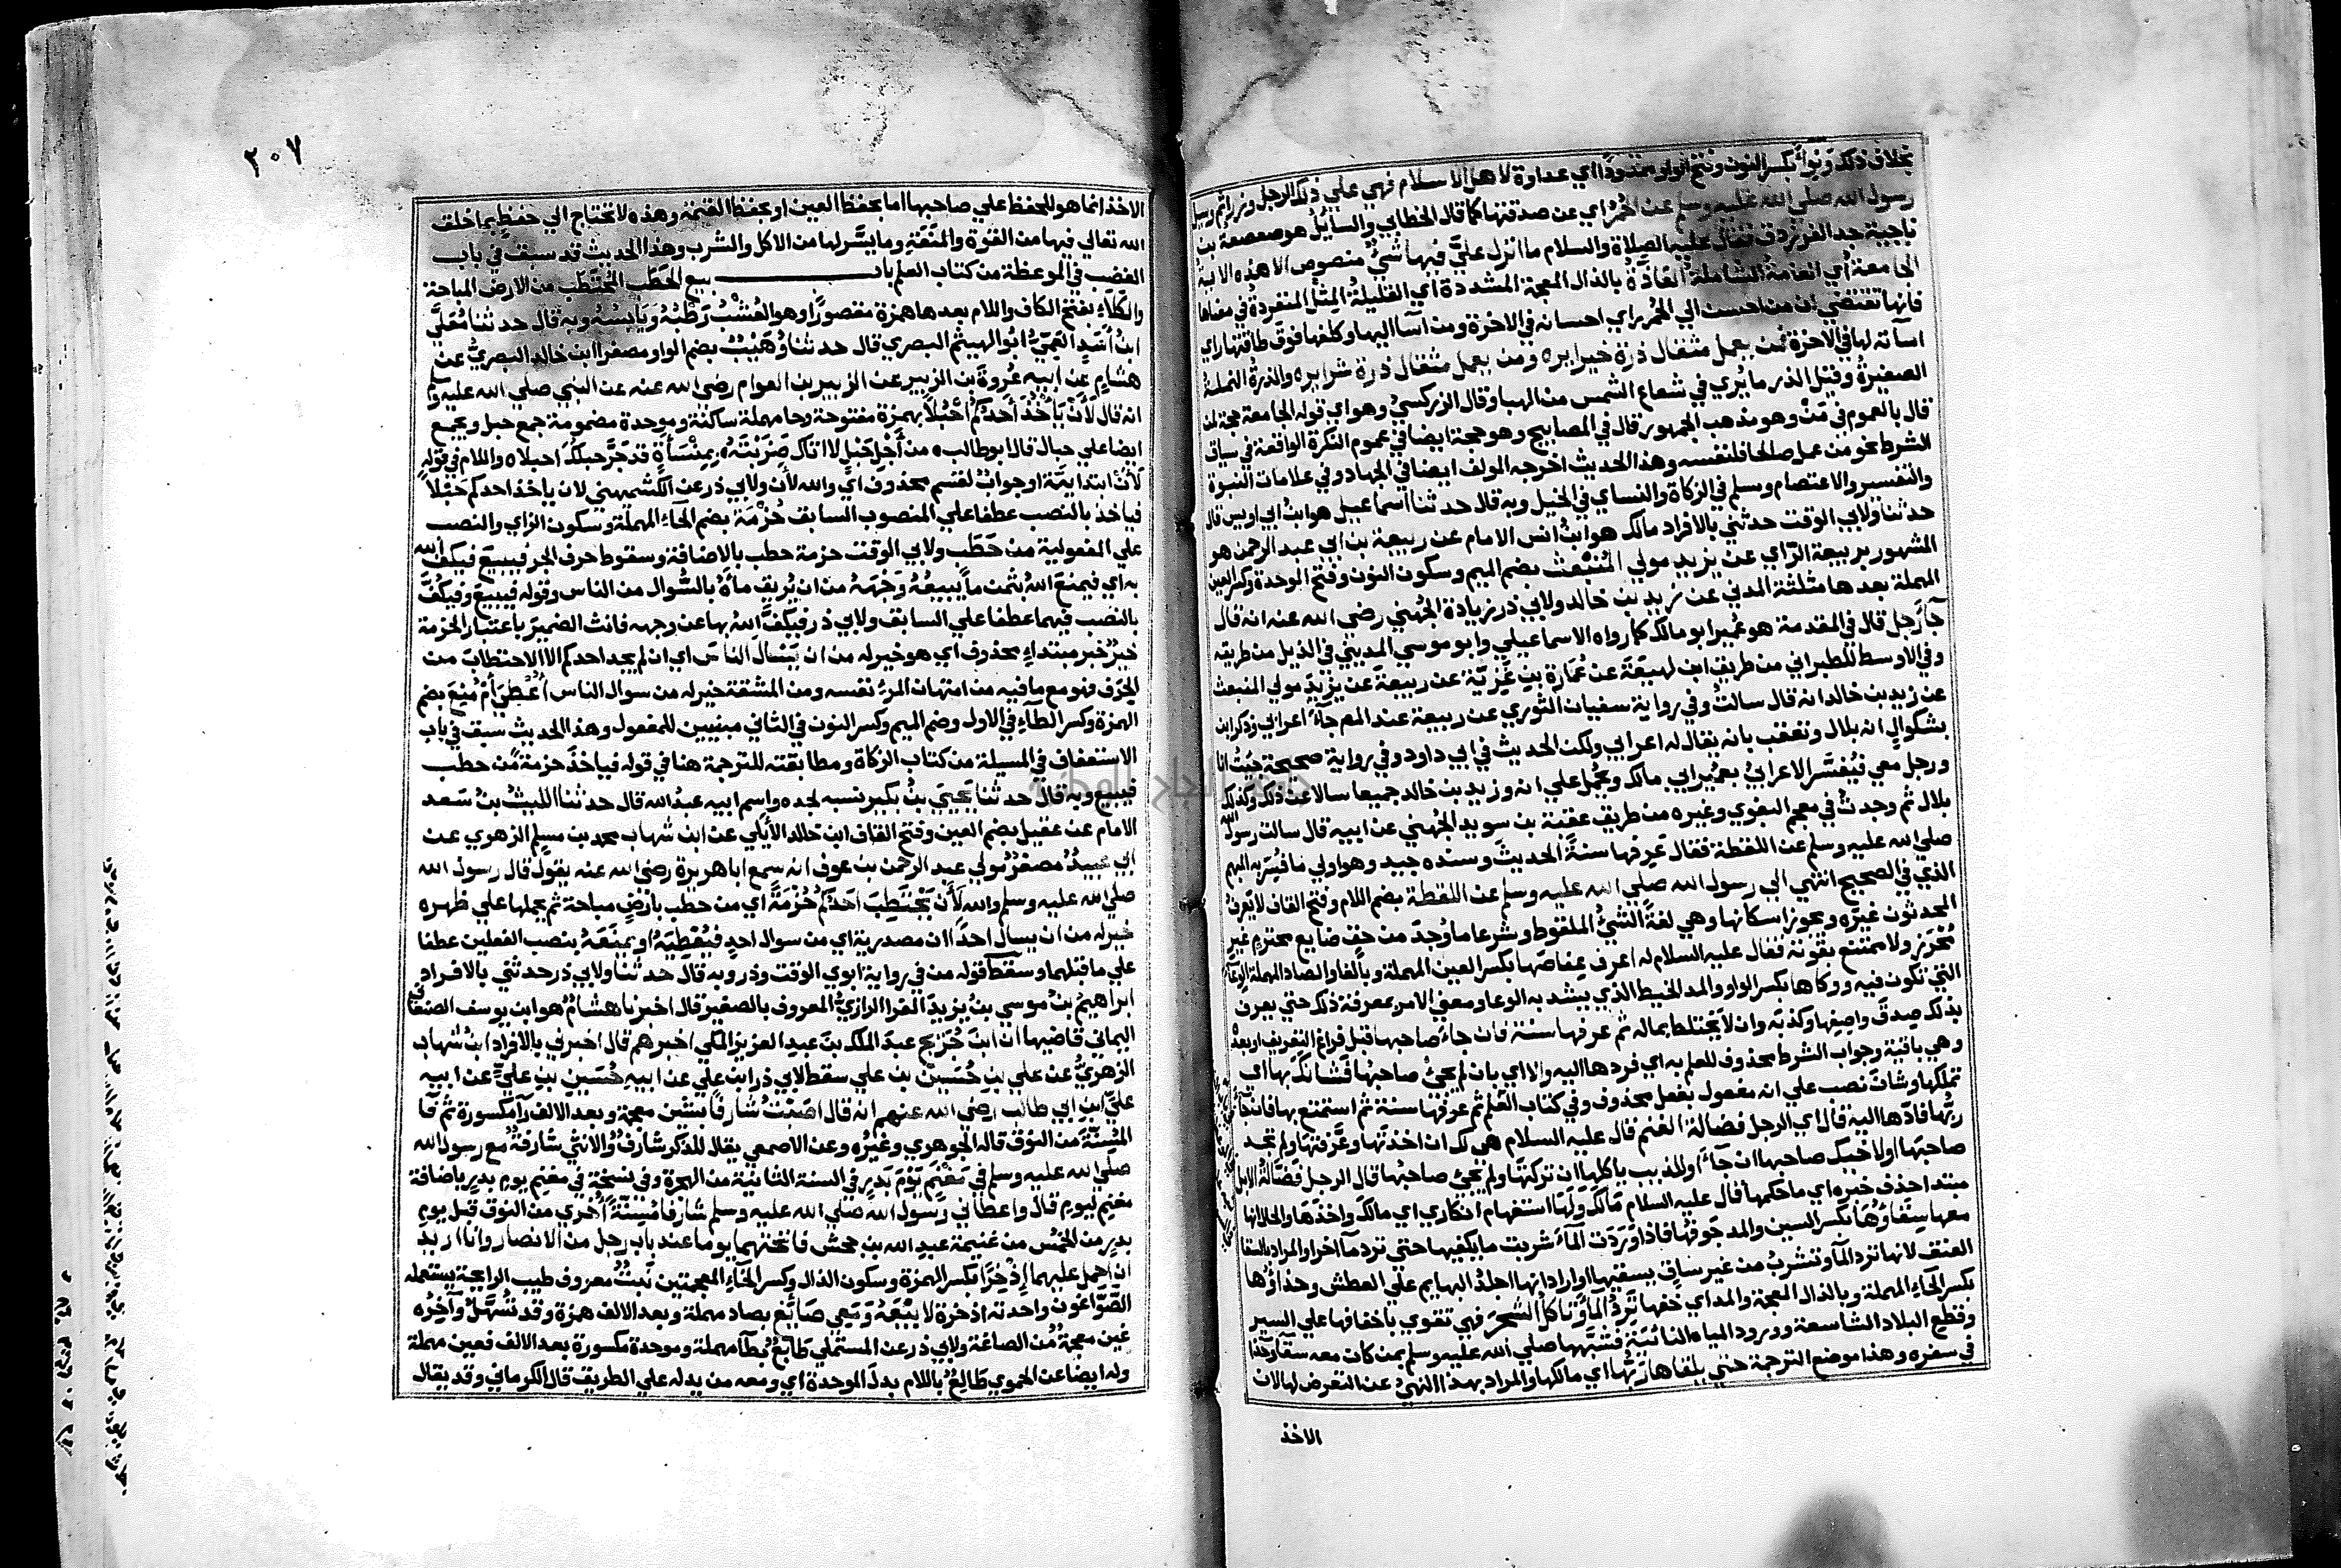 بخلاف ذلك ونواءً بكسر النون وفتح الواو ممدودًا اي عداوة لاهل الاسلام فهي علي ذلك الرجل وزر ثم وسيل
رسول الله صلي الله عليه وسلم عن الحُمُر اي عن صدقتها كما قال الخطابي والسايل هو صعصعة بن
ناجية جد الفرزدق فقال عليه الصلاة والسلام ما انزل عليَّ فيها شيٌ منصوص الا هذه الاية
الجامعة اي العامة الشاملة الفاذّة بالذال المعجمة المشددة اي القليلة المثل المنفردة في معناها
فانها تقتضي ان من احسن الي الحُمُر راي احسانه في الاخرة ومن اسا اليها وكلفها فوق طاقتها راي
اساته لها في الاخرة فمن يعمل مثقال ذرة خيرا يره ومن يعمل مثقال ذرة شرا يره والذرة النملة
الصغيرة وقيل الذر ما يُري في شعاع الشمس من الهبا وقال الزركشي وهو اي قوله الجامعة حجة لمن
قال بالعموم في مَنْ وهو مذهب الجمهور قال في المصابيح وهو حجة ايضا في عموم النكرة الواقعة في سياق
الشرط نحو من عمل صالحا فلنفسه وهذا الحديث اخرجه المولف ايضا في الجهاد وفي علامات النبوة
والتفسير والاعتصام وسلم في الزكاة والنساي في الخيل وبه قال حدثنا اسماعيل هو ابن ابي اويس قال
حدثنا ولابي الوقت حدثني بالافراد مالك هو ابن انس الامام عن ربيعة بن ابي عبد الرحمن هو
المشهور بربيعة الرّاي عن يزيد مولي المُنْبَعِث بضم الميم وسكون النون وفتح الموحدة وكسر العين
المهملة بعدها مثلثة المدني عن زيد بن خالد ولابي ذر زيادة الجُهني رضي الله عنه انه قال
جآ رجل قال في المقدمة هو عُمير ابو مالك كما رواه الاسماعيلي وابو موسي المديني في الذيل من طريقه
وفي الاوسط للطبراني من طريق ابن لهيعة عن عُمارة بن غَزِيّة عن ربيعة عن يزيد مولي المنبعث
عن زيد بن خالد انه قال سالتُ وفي رواية سفيان الثوري عن ربيعة عند المص جآ اعرابي وذكر ابن
بشكوال انه بلال وتعقب بانه يقال له اعرابي ولكن الحديث في ابي داود وفي رواية صحيحة جئت انا
ورجل معي فيُفسَّر الاعرابي بعُمير ابي مالك ويُحمل علي انه وزيد بن خالد جميعا سالا عن ذلك وكذلك
بلال ثم وجدتُ في معجم البغوي وغيره من طريق عقبة بن سويد الجُهني عن ابيه قال سالت رسول الله
صلي الله عليه وسلم عن اللقطة فقال عَرِّفها سنةً الحديثَ وسنده جيد وهو اولي ما فُسِّر به المبهم
الذي في الصحيح انتهي الي رسول الله صلي الله عليه وسلم عن اللقطة بضم اللام وفتح القاف لا يعرف
المحدثون غيره ويجوز اسكانها وهي لغةً الشيُ الملقوط وشرعا ما وُجد من حق ضايع محترم غير
مُحْرَز ولا ممتنع بقوته فقال عليه السلام له اعرف عفاصها بكسر العين المهملة وبالفا والصاد المهملة الوعا
التي تكون فيه ووكاها بكسر الواو والمد الخيط الذي يشد به الوعا ومعني الامر بمعرفة ذلك حتي يعرف
بذلك صِدق واصفها وكذبَه وان لا يختلط بماله ثم عرفها سنة فان جاء صاحبها قبل فراغ التعريف او بعده
وهي باقية وجواب الشرط محذوف للعلم به اي فردها اليه والا اي بان لم يجئ صاحبها فشانك بها اي
تملكها وشانك نصب علي انه مفعول بفعل محذوف وفي كتاب العلم ثم عرفها سنة ثم استمتع بها فان جا
ربُّها فادّها اليه قال اي الرجل فضالة الغنم قال عليه السلام هي لك ان اخذتها وعَرَّفتها ولم تجد
صاحبَها او لاخيك صاحبها ان جآ او للذيب ياكلها ان تركتَها ولم يجئ صاحبها قال الرجل فضالة الابل
مبتدا حذف خبره اي ما حكمها قال عليه السلام مالك ولها استفهام انكاري اي مالك واخذها والحال انها
معها سِقاوها بكسر السين والمد جَوفُها فاذا وَرَدَت المآ شربت ما يكفيها حتي ترد مآ اخر او المراد بالسقا
العنق لانها ترد المآ وتشرب من غير ساق يسقيها او اراد انها اجلد البهايم علي العطش وحذاوها
بكسر الحآء المهملة وبالذال المعجمة والمد اي خفها تَرِدُ المآ وتاكل الشجر فهي تقوي باخفافها علي السير
وقطع البلاد الشاسعة وورود المياه النائية فشبَّهها صلي الله عليه وسلم بمن كان معه سقآ وحذآ
في سفره وهذا موضع الترجمة حتي يلقاها ربُّها اي مالكها والمراد بهذا النهيُ عن التعرض لها لان
الاخذ
٢٠٧
الاخذ انما هو للحفظ علي صاحبها اما بحفظ العين او بحفظ القيمة وهذه لا تحتاج الي حفظٍ بما خلق
الله تعالي فيها من القوة والمَنَعَة وما يُسِّر لها من الاكل والشرب وهذا الحديث قد سبق في باب
الغضب في الموعظة من كتاب العلم باب بيع الحَطَب المُحْتَطَب من الارض المباحة
والكلاء بفتح الكاف واللام بعدها همزة مقصورًا وهو العُشْبُ رَطْبُهُ ويَابِسُهُ وبه قال حدثنا مُعَلَّي
ابن اَسَدٍ العَمِّيُّ ابُو الهيثم البصري قال حدثنا وُهَيْبٌ بضم الواو مصغرا ابن خالد البصريُّ عن
هشام عن ابيه عُروة بن الزبير عن الزبير بن العوام رضي الله عنه عن النبي صلي الله عليه وسلم
انه قال لَأَنْ يَأْخُذَ أَحَدُكُم اَحْبُلًا بهمزة مفتوحة وحا مهملة ساكنة وموحدة مضمومة جمع حبل ويجمع
ايضا علي حبال قال ابو طالب ه من اَجْلِ حَبْلٍ لا اباك ضَرَبْتَهُ ه بِمِنْسَأَةٍ قد جَرَّ حبلك احبلا ه واللام في قوله
لَأَن ابتداييّة او جوابُ لقسم محذوف اي والله لأن ولابي ذر عن الكشميهني لان ياخذ احدكم حَبْلًا
فياخذ بالنصب عطفا علي المنصوب السابق حُزْمَة بضم الحاء المهملة وسكون الزاي والنصب
علي المفعولية من حَطَب ولابي الوقت حزمة حطب بالاضافة وسقوط حرف الجر فيبيعَ فيكف الله
به اي فيمنع اللهُ بثمن ما يبيعُهُ وَجْهَهُ من ان يُريق ماءَهُ بالسُّوال من الناس وقوله فيبيعَ وفيكفَّ
بالنصب فيهما عطفا علي السابق ولابي ذر فيكفَّ اللهُ بها عن وجهه فانث الضمير باعتبار الحزمة
خيرٌ خبر مبتداءٍ محذوف اي هو خير له من ان يَسْال الناسَ اي ان لم يجد احدكم الا الاحتطابَ من
الحِرَف فهو مع ما فيه من امتهان المرء نفسه ومن المشقة خير له من سوال الناس اُعْطِيَ أَمْ مُنِعَ بضم
الهمزة وكسر الطآءِ في الاول وضم الميم وكسر النون في الثاني مبنيين للمفعول وهذا الحديث سبق في باب
الاستعفاف في المسيلة من كتاب الزكاة ومطابقته للترجمة هنا في قوله فياخذَ حزمةً من حطب
فيبيع وبه قال حدثنا يَحيَي بنُ بكير نسبه لجده واسم ابيه عبدُ الله قال حدثنا الليثُ بنُ سَعد
الامام عن عقيل بضم العين وفتح القاف ابن خالد الأَيْلي عن ابن شهاب محمد بن مسلم الزهري عن
ابي عُبيدٍ مصغرٌ مولي عبد الرحمن بن عوف انه سمع ابا هريرة رضي الله عنه يقول قال رسول الله
صلي الله عليه وسلم والله لَأَنْ يَحْتَطِبَ اَحَدُكُم حُزْمَةً اي من حطب بارضٍ مباحة ثم يحملها علي ظهره
خير له من ان يسال احدًا ان مصدرية اي من سوال احدٍ فيُعْطِيَهُ او يمنَعَهُ بنصب الفعلين عطفا
علي ما قبلهما وسقط قوله من في رواية ابوي الوقت وذر وبه قال حدثنا ولابي ذر حدثني بالافراد
ابراهيم بن موسي بن يزيد الفرا الرازيُّ المعروف بالصغير قال اخبرنا هشامٌ هو ابن يوسف الصنعاني
اليماني قاضيها ان ابن جُرَيج عبدَ الملك بن عبدِ العزيز المكي اخبرهم قال اخبرني بالافراد ابنُ شهاب
الزهريُّ عن علي بنِ حُسَين بن علي سقط لابي ذر ابن علي عن ابيه حُسَين بنِ عليٍّ عن ابيه
عليّ ابنِ ابي طالب رضي الله عنهم انه قال اصَبْتُ شارِفًا بشين معجمة وبعد الالف رآ مكسورة ثم فا
المُسنّة من النوق قاله الجوهري وغيرُه وعن الاصمعي يقال للذكر شارفٌ والانثي شارفةٌ مع رسول الله
صلي الله عليه وسلم في مَغْنَمٍ يَوْمَ بَدرٍ في السنة الثانية من الهجرة وفي نسخة في مغنمِ يومِ بدرٍ باضافة
مغنم ليوم قال واعطاني رَسول الله صلي الله عليه وسلم شارفًا مُسِنّةً اُخري من النوق قبل يوم
بدرٍ من الخمس من غنيمة عبدِ الله بن جحش فانختهما يوما عند باب رجل من الانصار وانا اريد
ان احمل عليهما اِذْخِرًا بكسر الهمزة وسكون الذال وكسر الخآءِ المعجمتين نَبتٌ معروف طيب الرايحة يستعمله
الصّوّاغون واحدته اذخرة لابيعَهُ ومَعِي صَايغ بصاد مهملة وبعد الالف همزة وقد تُسهَّلُ وآخرُه
غين معجمةٌ من الصاغة ولابي ذر عن المستملي طَابعٌ بطآ مهملة وموحدة مكسورة بعد الالف فعين مهملة
وله ايضا عن الحموي طَالِعٌ باللام بدلَ الموحدة اي ومعه من يدله علي الطريق قال الكرماني وقد يقال